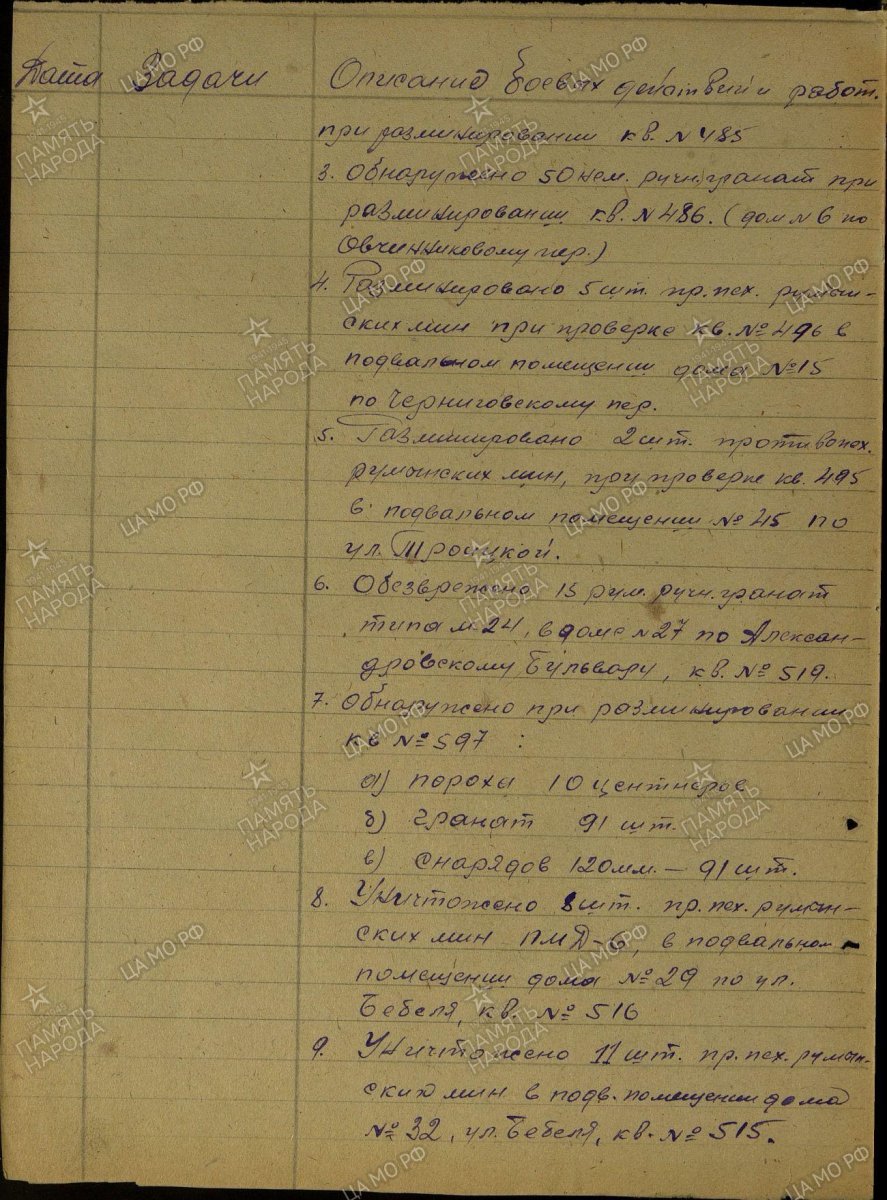 Дата Задачи Описание боевых действий и работ.
при разминировании кв. N 485
3. Обнаружено 50 нем. ручн. гранат при
разминировании кв. N 486. (дом N 6 по
Овчинниковому пер.)
4. Разминировано 5 шт. пр. пех. румын-
ских мин при проверке кв. № 496 в
подвальном помещении дома № 15
по Черниговскому пер.
5. Разминировано 2 шт. противопех.
румынских мин, при проверке кв. 495
в подвальном помещении № 45 по
ул. Троицкой.
6. Обезврежено 15 рум. ручн. гранат
типа м. 24, в доме N 27 по Алексан-
дровскому Бульвару, кв. № 519.
7. Обнаружено при разминировании
кв № 597 :
а) пороха 10 центнеров
б) гранат 91 шт.
в) снарядов 120мм. — 91 шт.
8. Уничтожено 8 шт. пр. пех. румын-
ских мин ПМД-6, в подвальном
помещении дома № 29 по ул.
Бебеля, кв. № 516
9. Уничтожено 11 шт. пр. пех. румын-
ских мин в подв. помещении дома
№ 32, ул. Бебеля, кв. № 515.
ЦА МО РФ
ПАМЯТЬ НАРОДА
1941-1945